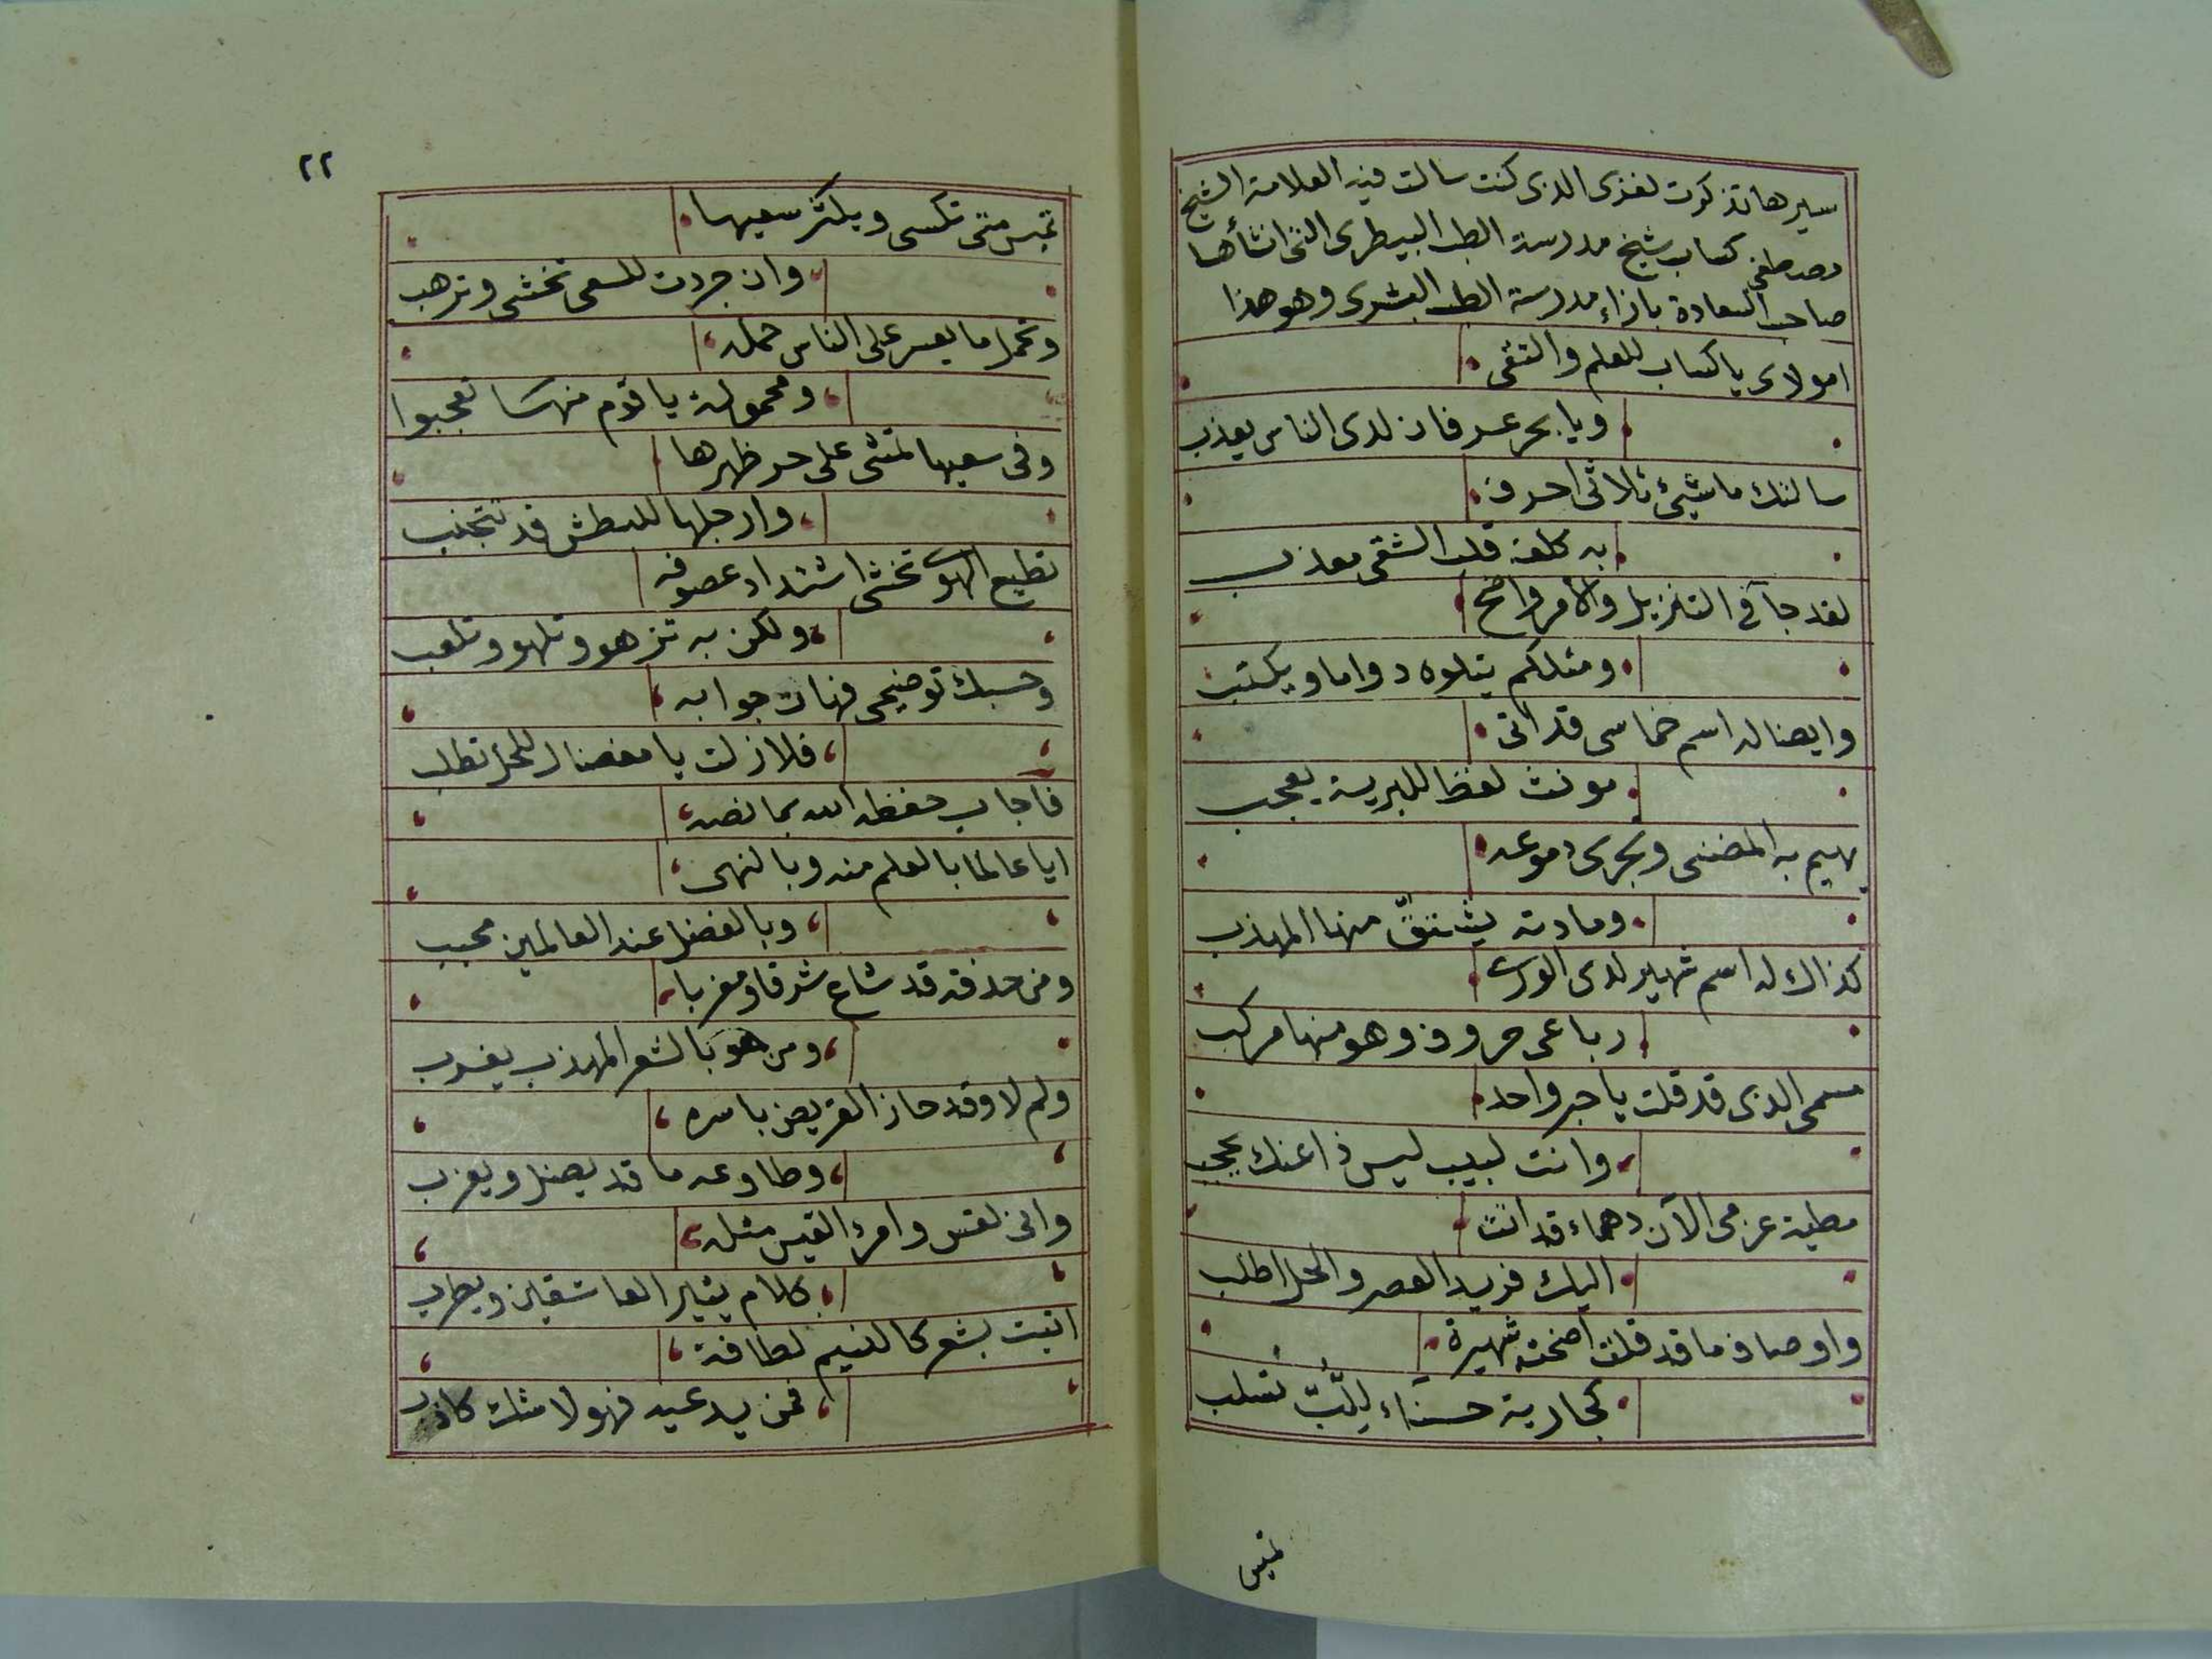 سيرها تذكرت لغزى الذى كنت سالت فيه العلامة الشيخ
مصطفى كساب شيخ مدرسة الطب البيطرى التى انشأها
صاحب السعادة بازاء مدرسة الطب البشرى وهو هذا
امولاى يا كساب للعلم والتقى
ويا بحر عرفان لدى الناس يعذب
سالتك ما شيئ ثلاثى احرف
به كلفة قلب الشقى معذب
لقد جآ فى التنزيل والامر واضح
ومثلكم يتلوه دواما ويكتب
وايضا له اسم خماسى قد اتى
مونث لفظا للبرية يعجب
يهيم به المضنى ويجرى دموعه
ومادته يشتقّ منها المهذب
كذاك له اسم شهير لدى الورى
رباعى حروف وهو منها مركب
مسمى الذى قد قلت يا حبر واحد
وانت لبيب ليس ذا عنك يحجب
مطية عزمى الآن دهماء قد اتت
اليك فريد العصر والحل اطلب
واوصاف ما قد قلت اضحت شهيرة
كجارية حسنآء للّبّ تسلب
تميس
٢٢
تميس متى تكسى ويكثر سعيها
وان جردت للسعى تخشى وترهب
وتحمل ما يعسر على الناس حمله
ومحمولة يا قوم منها تعجبوا
وفى سعيها تمشى على حر ظهرها
وارجلها للبطش قد تتجنب
تطيع الهوى تخشى اشتداد عصوفه
ولكن به تزهو وتلهو وتلعب
وحسبك توضيحى فهات جوابه
فلا زلت يا مفضال للحل تطلب
فاجاب حفظه الله بما نصه
ايا عالما بالعلم منه وبالنهى
وبالفضل عند العالمين محبب
ومن حذقه قد شاع شرقا ومغربا
ومن هو بالشعر المهذب يغرب
ولم لا وقد حاز القريض باسره
وطاوعه ما قد يضل ويعزب
وانى لقس وامرء القيس مثله
كلام يثير العاشقين ويطرب
اتيت بشعر كالنسيم لطافة
فمن يدعيه فهو لا شك كاذب